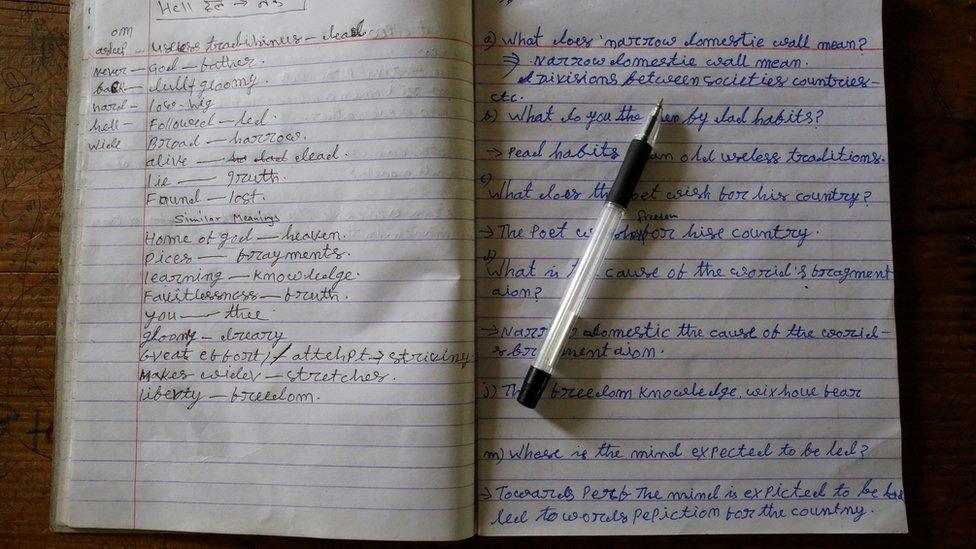 Hell
om
useless traditihinus - dead
Never - God - father.
dull & gloomy
hard - low - hig
hell - Followed - led.
wide Broad - narrow.
alive - dead.
Lie - truth.
Found - lost.
Similar Meanings
Home of god - heaven.
pices - frayments.
learning - knowledge.
Fauitlessness - truth.
you - thee
gloomy - dreary
Great effort / attehpt → striving
Makes wider - stretches.
liberty - freedom.
a) What does narrow domestie wall mean?
⇒ Narrow domestie wall mean.
divisions between societies countries -
etc.
What do you the by dad habits?
→ Dead habits old useless traditions.
c)
What does the poet wish for his country?
freedom
→ The Poet for hise country.
What is the cause of the world's fragment
aion?
→ domestic the cause of the world -
mentaion.
j) freedom knowledge, wixhout fear
m) Whose is the mind expected to be led?
→ Towards Perf the mind is expicted to be
led towords pepiction for the country.